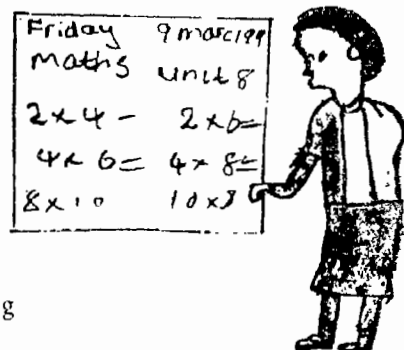 Friday 9 marc199
Maths unit 8
2 x 4 - 2 x 6=
4 x 6= 4 x 8=
8 x 10 10 x 8
g